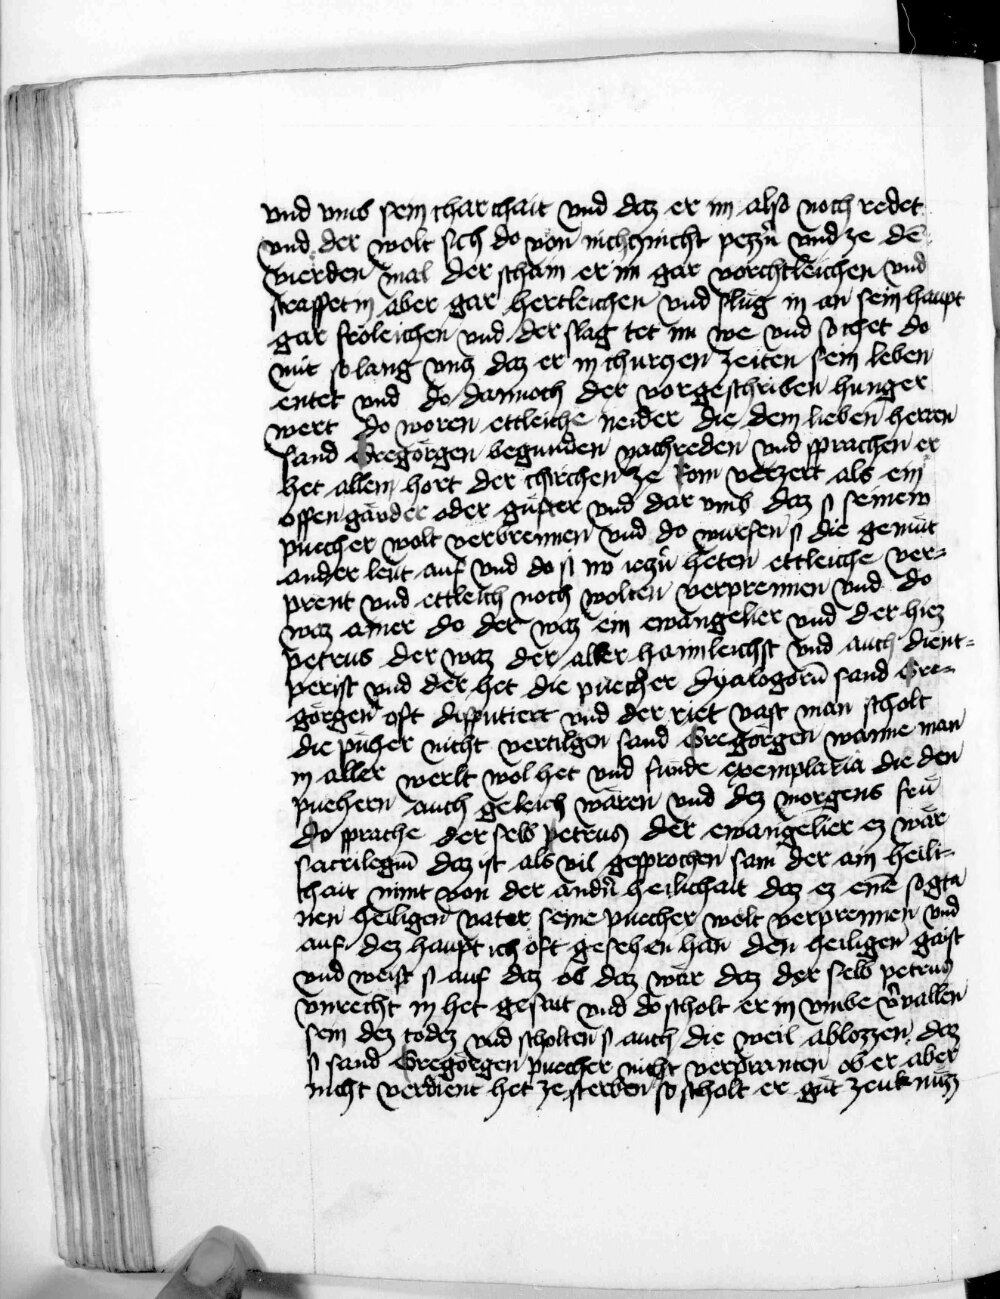 vnd vmb sein charchait vnd daz er im also noch redet
vnd der wolt sich do von nichcznicht pezzern vnd ze dē
vierden mal derscham er im gar vorchtleichen vnd
straffet in aber gar hertleichen vnd slug in an sein haupt
gar fröleichen vnd der slag tet im we vnd sochet do
mit so lang vncz daz er in churczen zeiten sein leben
entet vnd do dannoch der vorgeschriben hunger
wert do woren ettleiche neider die dem lieben herren
sand Gregörgen begunden nachreden vnd sprachen er
het allen hort der chirchen ze Rom verzert als ein
offen gäuder oder güfter vnd dar vmb daz s seinew
puecher wolt verbrennen vnd do wurfen s die gemüt
ander leut auf vnd do si nv iezn heten ettleiche ver-
prent vnd ettleich noch wolten verprennen vnd do
waz ainer do der waz ein ewangelier vnd der hiez
petrus der waz der aller haimleichst vnd auch dient-
perist vnd der het die puecher dyalogorū sand Gre-
görgen oft disputiert vnd der riet vast man scholt
die pücher nicht vertilgen sand Gregörgen wanne man
in aller werlt wol het vnd funde exemplaria die den
puechern auch geleich wären vnd dez morgens frü
do sprache der selb petrus der ewangelier ez wär
sacrilegiū daz ist als vil gesprochen sam der ain heili-
chait nimt von der andn heilichait daz ez eine sogta
nen heiligen vater seine puecher wolt verprennen vnd
auf dez haupt ich oft gesehen han den heiligen gaist
vnd weist s auf daz ob daz wär daz der selb petrus
vnrecht in het gesait vnd do scholt er in vmbe vvallen
sein dez todez vnd scholten s auch die weil ablozzen daz
s sand Gregörgen puecher nicht verpranten ob er aber
nicht verdient het ze sterben so scholt er gut zeuknüzz